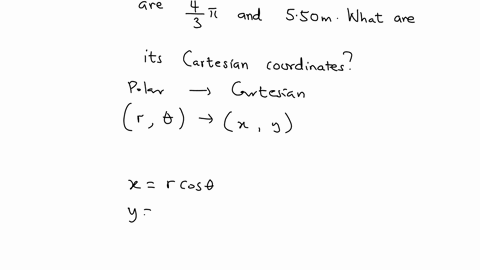 are 4/3 π and 5.50m. What are
its Cartesian coordinates?
Polar → Cartesian
(r, θ) → (x, y)
x = r cosθ
y =